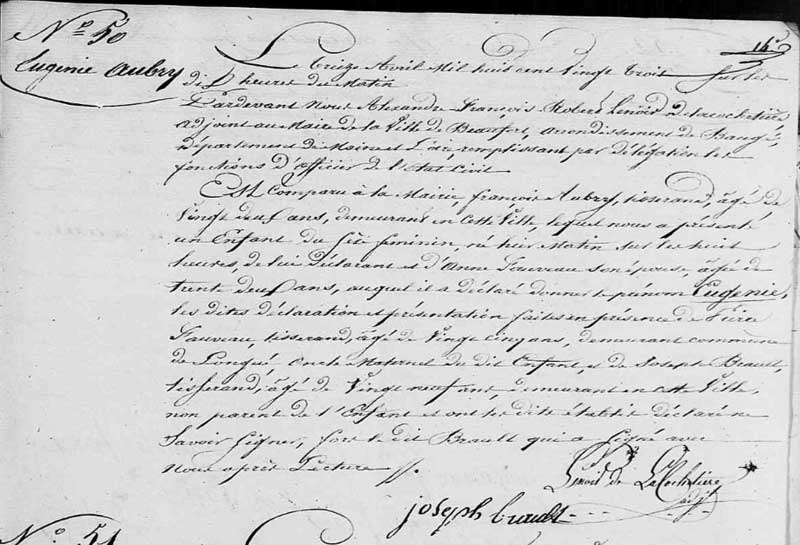 N.º 50
Eugenie Aubry
16
Le treize Avril Mil huit cent vingt trois sur les
dix heures du Matin
Pardevant Nous Alexandre François Robert Lenoir De Lacochetière
adjoint au Maire de la Ville de Beaufort, arrondissement de Baugé,
Département de Maine et Loire, remplissant par délégation les
fonctions d'officier de l'état Civil
Est Comparu à la Mairie, françois Aubry, tisserand, âgé de
Vingt neuf ans, demeurant en Cette Ville, lequel nous a présenté
un Enfant du sexe feminin, né hier Matin sur les huit
heures, de lui Déclarant et d'Anne Fauveau son épouse, âgée de
trente deux ans, auquel il a déclaré donner le prénom Eugenie,
les dites déclaration et présentation faites en présence de
Fauveau, tisserand, âgé de Vingt cinq ans, demeurant commune
de Longué, oncle Maternel du dit Enfant, et de Joseph Brault,
tisserand, âgé de Vingt neuf ans, demeurant en cette Ville,
non parent de l'Enfant et ont les dits établis déclaré ne
Savoir Signer, fors le dit Brault qui a Signé avec
Nous après Lecture
Lenoir De LaCochetière
adj.
joseph brault
N.º 51